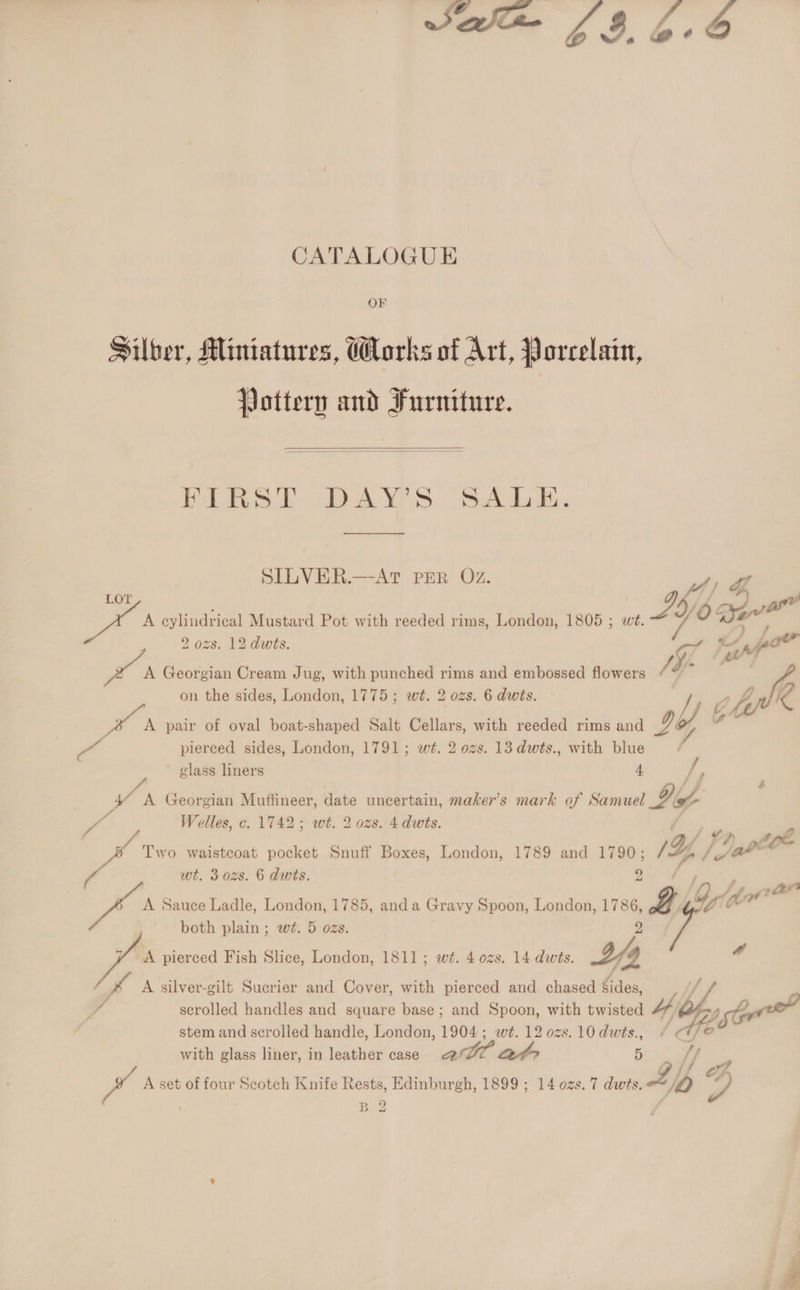 CATALOGUE
OF
Silver, Miniatures, Works of Art, Porcelain,
Pottery and Furniture.
FIRST DAY'S SALE.
SILVER.—AT PER OZ.
LOT
A cylindrical Mustard Pot with reeded rims, London, 1805 ; wt.
2 ozs. 12 dwts.
A Georgian Cream Jug, with punched rims and embossed flowers
on the sides, London, 1775 ; wt. 2 ozs. 6 dwts.
A pair of oval boat-shaped Salt Cellars, with reeded rims and
pierced sides, London, 1791 ; wt. 2 ozs. 13 dwts., with blue
glass liners 4
A Georgian Muffineer, date uncertain, maker's mark of Samuel
Welles, c. 1742 ; wt. 2 ozs. 4 dwts.
5 Two waistcoat pocket Snuff Boxes, London, 1789 and 1790 ;
wt. 3 ozs. 6 dwts. 2
A Sauce Ladle, London, 1785, and a Gravy Spoon, London, 1786,
both plain ; wt. 5 ozs. 2
A pierced Fish Slice, London, 1811 ; wt. 4 ozs. 14 dwts. 2/9
A silver-gilt Sucrier and Cover, with pierced and chased sides,
scrolled handles and square base ; and Spoon, with twisted
stem and scrolled handle, London, 1904 ; wt. 12 ozs. 10 dwts.,
with glass liner, in leather case 5
A set of four Scotch Knife Rests, Edinburgh, 1899 ; 14 ozs. 7 dwts.
B 2